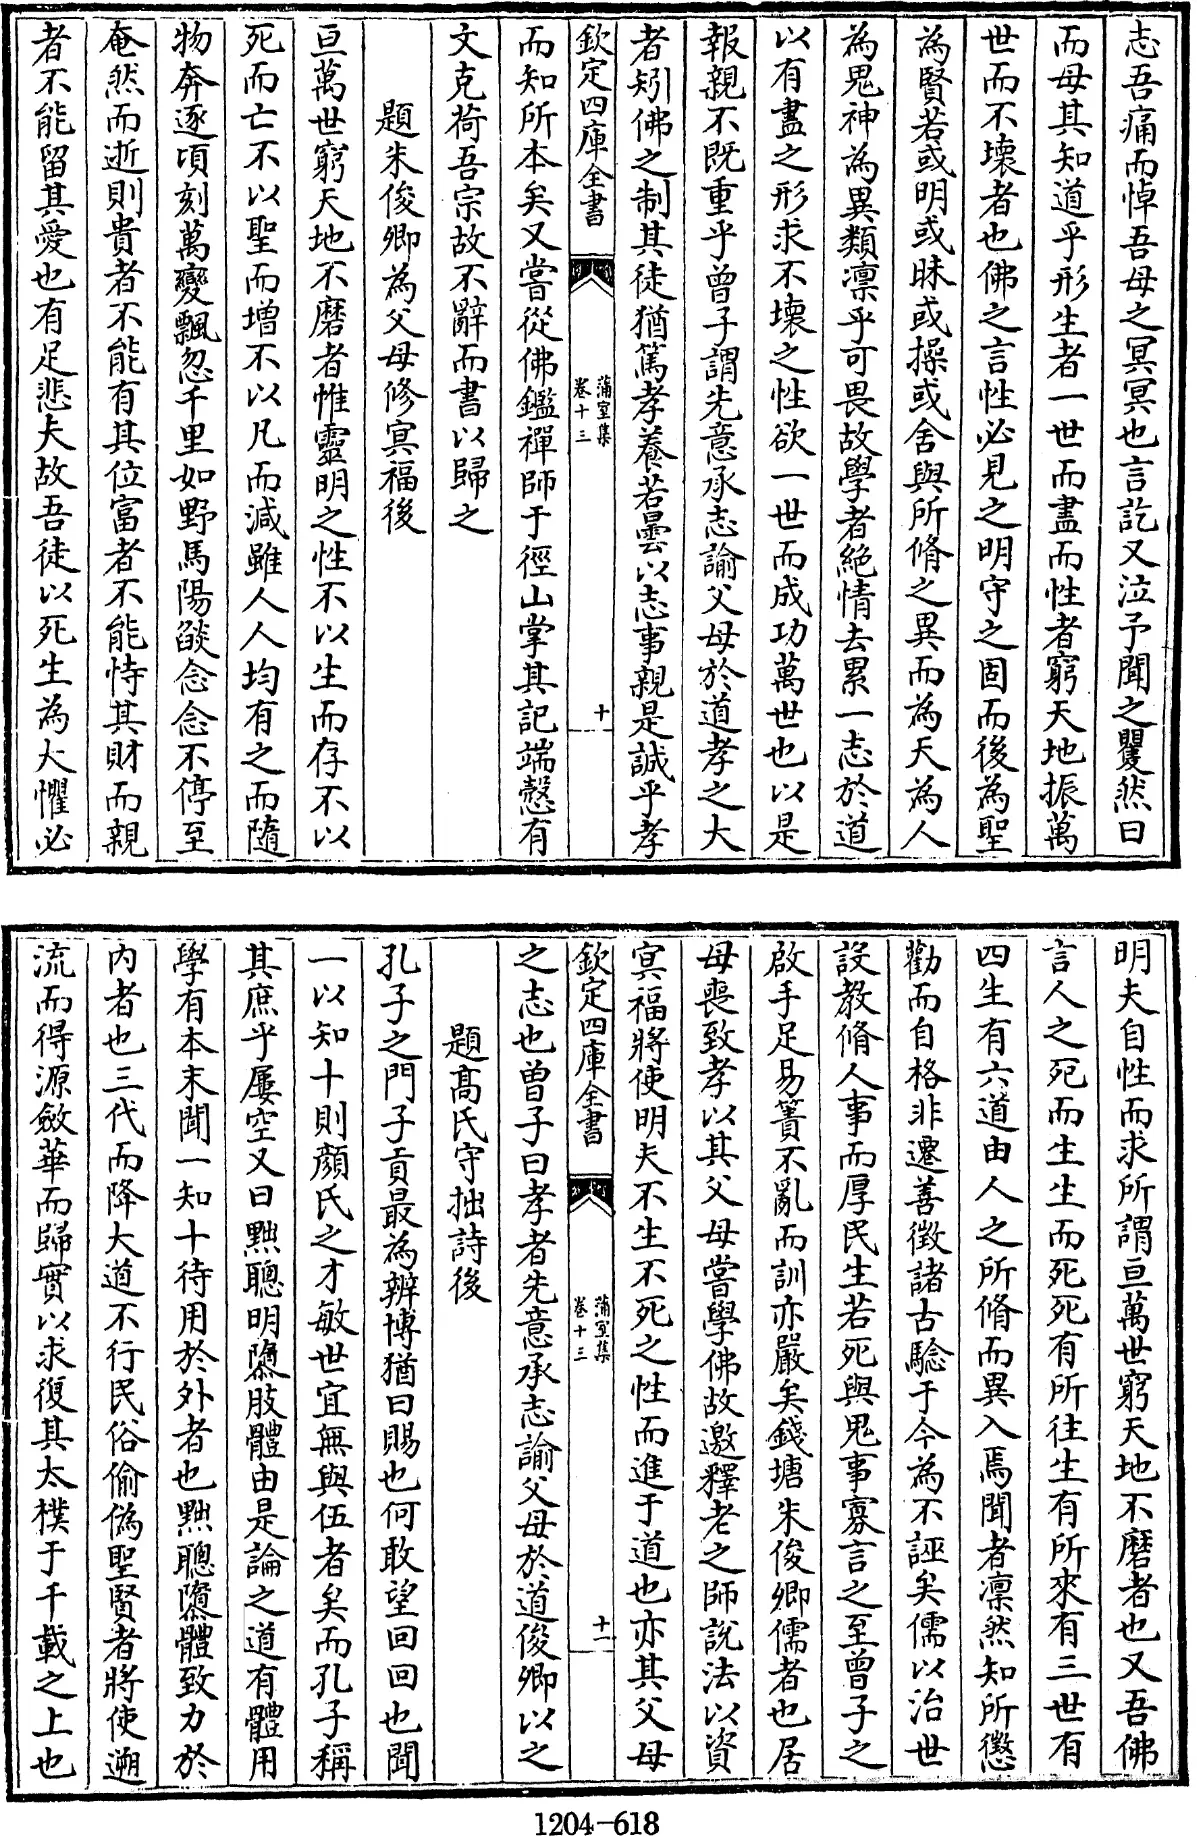 志吾痛而悼吾母之冥冥也言訖又泣予聞之矍然曰
而母其知道乎形生者一世而盡而性者窮天地振萬
世而不壞者也佛之言性必見之明守之固而後為聖
為賢若或明或昧或操或舍與所脩之異而為天為人
為鬼神為異類凛乎可畏故學者絶情去累一志於道
以有盡之形求不壞之性欲一世而成功萬世也以是
報親不既重乎曾子謂先意承志諭父母於道孝之大
者矧佛之制其徒猶篤孝養若曇以志事親是誠乎孝
欽定四庫全書 蒲室集 卷十三 十
而知所本矣又嘗從佛鑑禪師于徑山掌其記端慤有
文克荷吾宗故不辭而書以歸之
題朱俊卿為父母修冥福後
亘萬世窮天地不磨者惟靈明之性不以生而存不以
死而亡不以聖而增不以凡而減雖人人均有之而隨
物奔逐頃刻萬變飄忽千里如野馬陽燄念念不停至
奄然而逝則貴者不能有其位富者不能恃其財而親
者不能留其愛也有足悲夫故吾徒以死生為大懼必
明夫自性而求所謂亘萬世窮天地不磨者也又吾佛
言人之死而生生而死死有所往生有所來有三世有
四生有六道由人之所脩而異入焉聞者凛然知所懲
勸而自格非遷善徵諸古驗于今為不誣矣儒以治世
設教脩人事而厚民生若死與鬼事寡言之至曾子之
啟手足易簀不亂而訓亦嚴矣錢塘朱俊卿儒者也居
母喪致孝以其父母嘗學佛故邀釋老之師說法以資
冥福將使明夫不生不死之性而進于道也亦其父母
欽定四庫全書 蒲室集 卷十三 十一
之志也曾子曰孝者先意承志諭父母於道俊卿以之
題髙氏守拙詩後
孔子之門子貢最為辨博猶曰賜也何敢望回回也聞
一以知十則顔氏之才敏世宜無與伍者矣而孔子稱
其庶乎屢空又曰黜聰明隳肢體由是論之道有體用
學有本末聞一知十待用於外者也黜聰隳體致力於
内者也三代而降大道不行民俗偷偽聖賢者將使遡
流而得源斂華而歸實以求復其太樸于千載之上也
1204-618